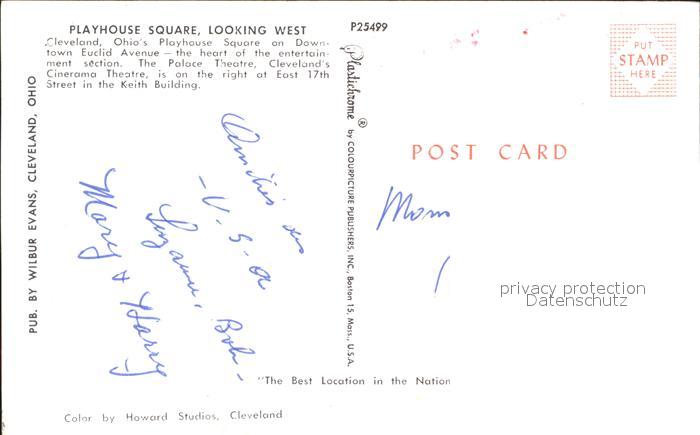 PLAYHOUSE SQUARE, LOOKING WEST
Cleveland, Ohio's Playhouse Square on Down-
town Euclid Avenue — the heart of the entertain-
ment section. The Palace Theatre, Cleveland's
Cinerama Theatre, is on the right at East 17th
Street in the Keith Building.
PUB. BY WILBUR EVANS, CLEVELAND, OHIO
Amitiés des
- U. S. A
Suzanne, Bob -
Mary & Harry
P25499
Plastichrome ® by COLOURPICTURE PUBLISHERS, INC., Boston 15, Mass., U.S.A.
PUT
STAMP
HERE
POST CARD
Mons
privacy protection
Datenschutz
"The Best Location in the Nation
Color by Howard Studios, Cleveland